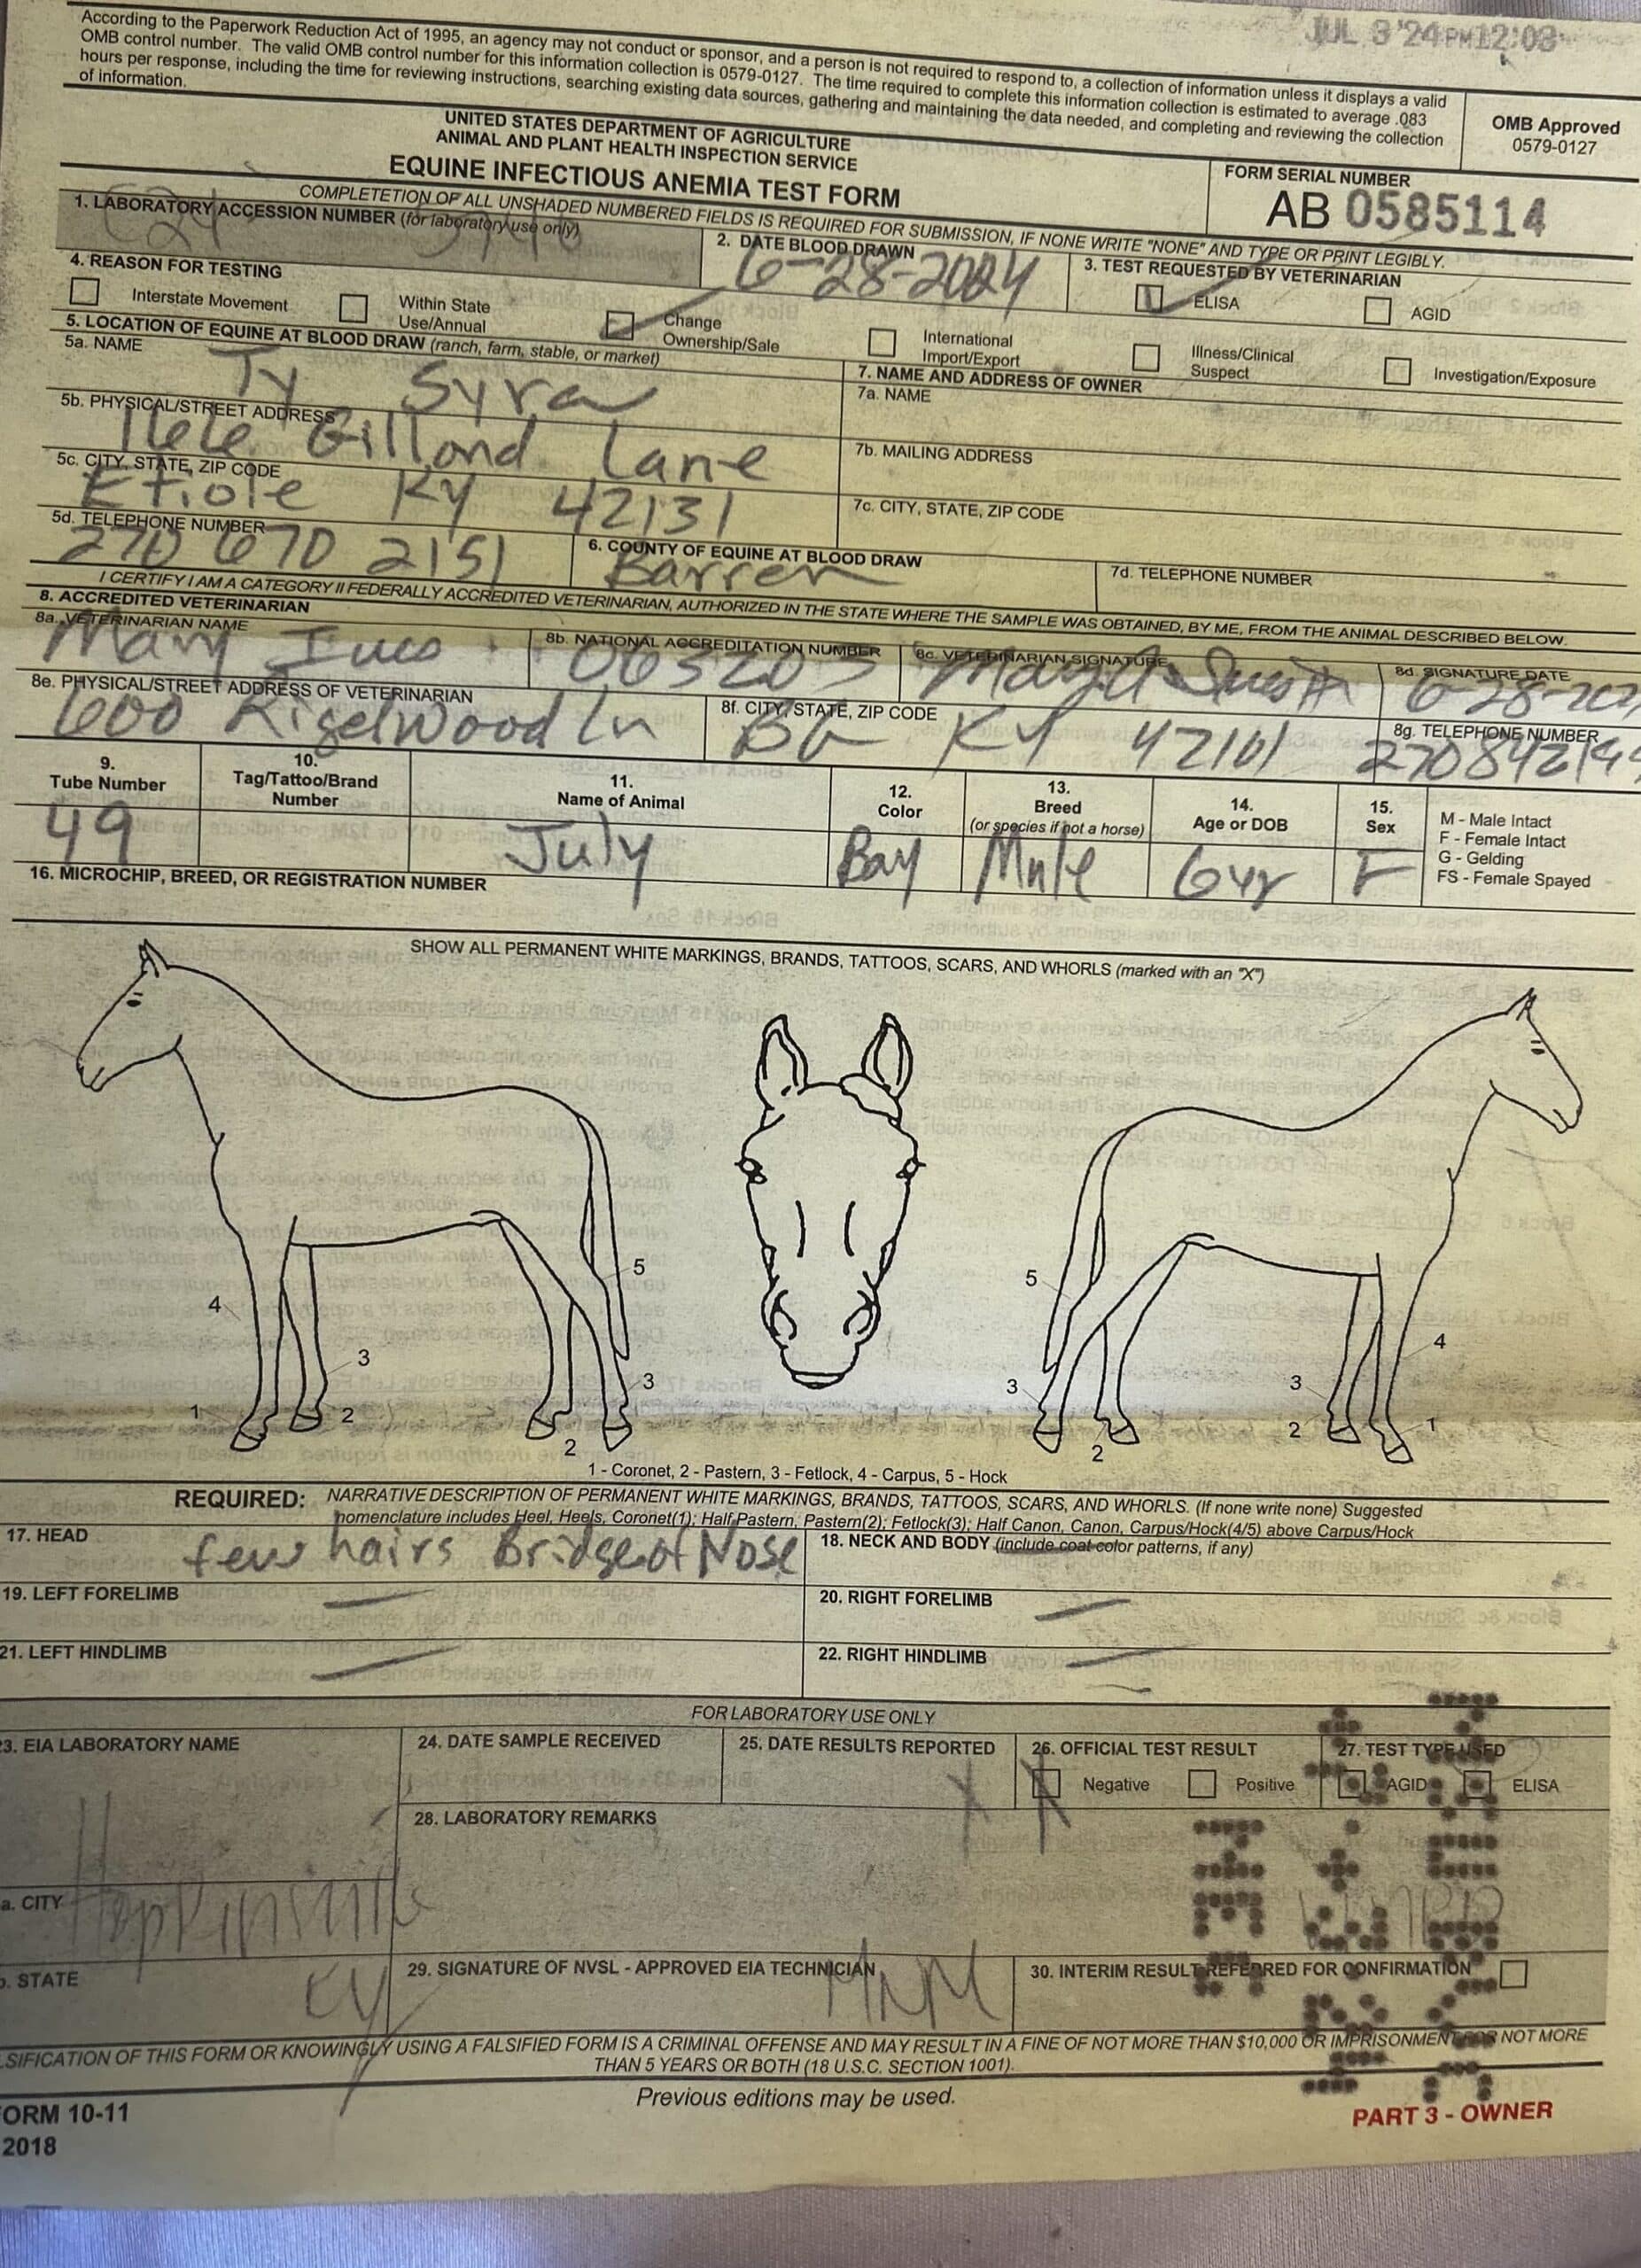 JUL 3 '24 PM 12:03
According to the Paperwork Reduction Act of 1995, an agency may not conduct or sponsor, and a person is not required to respond to, a collection of information unless it displays a valid
OMB control number. The valid OMB control number for this information collection is 0579-0127. The time required to complete this information collection is estimated to average .083
hours per response, including the time for reviewing instructions, searching existing data sources, gathering and maintaining the data needed, and completing and reviewing the collection
of information.
OMB Approved
0579-0127
UNITED STATES DEPARTMENT OF AGRICULTURE
ANIMAL AND PLANT HEALTH INSPECTION SERVICE
EQUINE INFECTIOUS ANEMIA TEST FORM
FORM SERIAL NUMBER
AB 0585114
COMPLETETION OF ALL UNSHADED NUMBERED FIELDS IS REQUIRED FOR SUBMISSION, IF NONE WRITE "NONE" AND TYPE OR PRINT LEGIBLY.
1. LABORATORY ACCESSION NUMBER (for laboratory use only)
2. DATE BLOOD DRAWN
6-28-2024
3. TEST REQUESTED BY VETERINARIAN
ELISA
AGID
4. REASON FOR TESTING
Interstate Movement
Within State
Use/Annual
Change
Ownership/Sale
International
Import/Export
Illness/Clinical
Suspect
Investigation/Exposure
5. LOCATION OF EQUINE AT BLOOD DRAW (ranch, farm, stable, or market)
5a. NAME
Ty Syra
7. NAME AND ADDRESS OF OWNER
7a. NAME
5b. PHYSICAL/STREET ADDRESS
Lane
7b. MAILING ADDRESS
5c. CITY, STATE, ZIP CODE
Etiole Ky 42131
7c. CITY, STATE, ZIP CODE
5d. TELEPHONE NUMBER
270 670 2151
6. COUNTY OF EQUINE AT BLOOD DRAW
Barren
7d. TELEPHONE NUMBER
I CERTIFY I AM A CATEGORY II FEDERALLY ACCREDITED VETERINARIAN, AUTHORIZED IN THE STATE WHERE THE SAMPLE WAS OBTAINED, BY ME, FROM THE ANIMAL DESCRIBED BELOW.
8. ACCREDITED VETERINARIAN
8a. VETERINARIAN NAME
Mary
8b. NATIONAL ACCREDITATION NUMBER
063203
8c. VETERINARIAN SIGNATURE
8d. SIGNATURE DATE
6-28-202
8e. PHYSICAL/STREET ADDRESS OF VETERINARIAN
600 Rigelwood Ln
8f. CITY, STATE, ZIP CODE
BG KY 42101
8g. TELEPHONE NUMBER
270842194
9.
Tube Number
10.
Tag/Tattoo/Brand
Number
11.
Name of Animal
12.
Color
13.
Breed
(or species if not a horse)
14.
Age or DOB
15.
Sex
M - Male Intact
F - Female Intact
G - Gelding
FS - Female Spayed
49
July
Bay
Mule
6yr
F
16. MICROCHIP, BREED, OR REGISTRATION NUMBER
SHOW ALL PERMANENT WHITE MARKINGS, BRANDS, TATTOOS, SCARS, AND WHORLS (marked with an "X")
4
3
1
2
5
3
2
5
3
2
4
3
2
1
1 - Coronet, 2 - Pastern, 3 - Fetlock, 4 - Carpus, 5 - Hock
REQUIRED: NARRATIVE DESCRIPTION OF PERMANENT WHITE MARKINGS, BRANDS, TATTOOS, SCARS, AND WHORLS. (If none write none) Suggested
nomenclature includes Heel, Heels, Coronet(1); Half Pastern, Pastern(2); Fetlock(3); Half Canon, Canon, Carpus/Hock(4/5) above Carpus/Hock
17. HEAD
few hairs Bridge of Nose
18. NECK AND BODY (include coat color patterns, if any)
19. LEFT FORELIMB
20. RIGHT FORELIMB
21. LEFT HINDLIMB
22. RIGHT HINDLIMB
FOR LABORATORY USE ONLY
23. EIA LABORATORY NAME
24. DATE SAMPLE RECEIVED
25. DATE RESULTS REPORTED
26. OFFICIAL TEST RESULT
Negative
Positive
27. TEST TYPE USED
AGID
ELISA
28. LABORATORY REMARKS
a. CITY
Hopkinsville
b. STATE
KY
29. SIGNATURE OF NVSL - APPROVED EIA TECHNICIAN
30. INTERIM RESULT REFERRED FOR CONFIRMATION
LSIFICATION OF THIS FORM OR KNOWINGLY USING A FALSIFIED FORM IS A CRIMINAL OFFENSE AND MAY RESULT IN A FINE OF NOT MORE THAN $10,000 OR IMPRISONMENT FOR NOT MORE
THAN 5 YEARS OR BOTH (18 U.S.C. SECTION 1001).
Previous editions may be used.
FORM 10-11
2018
PART 3 - OWNER